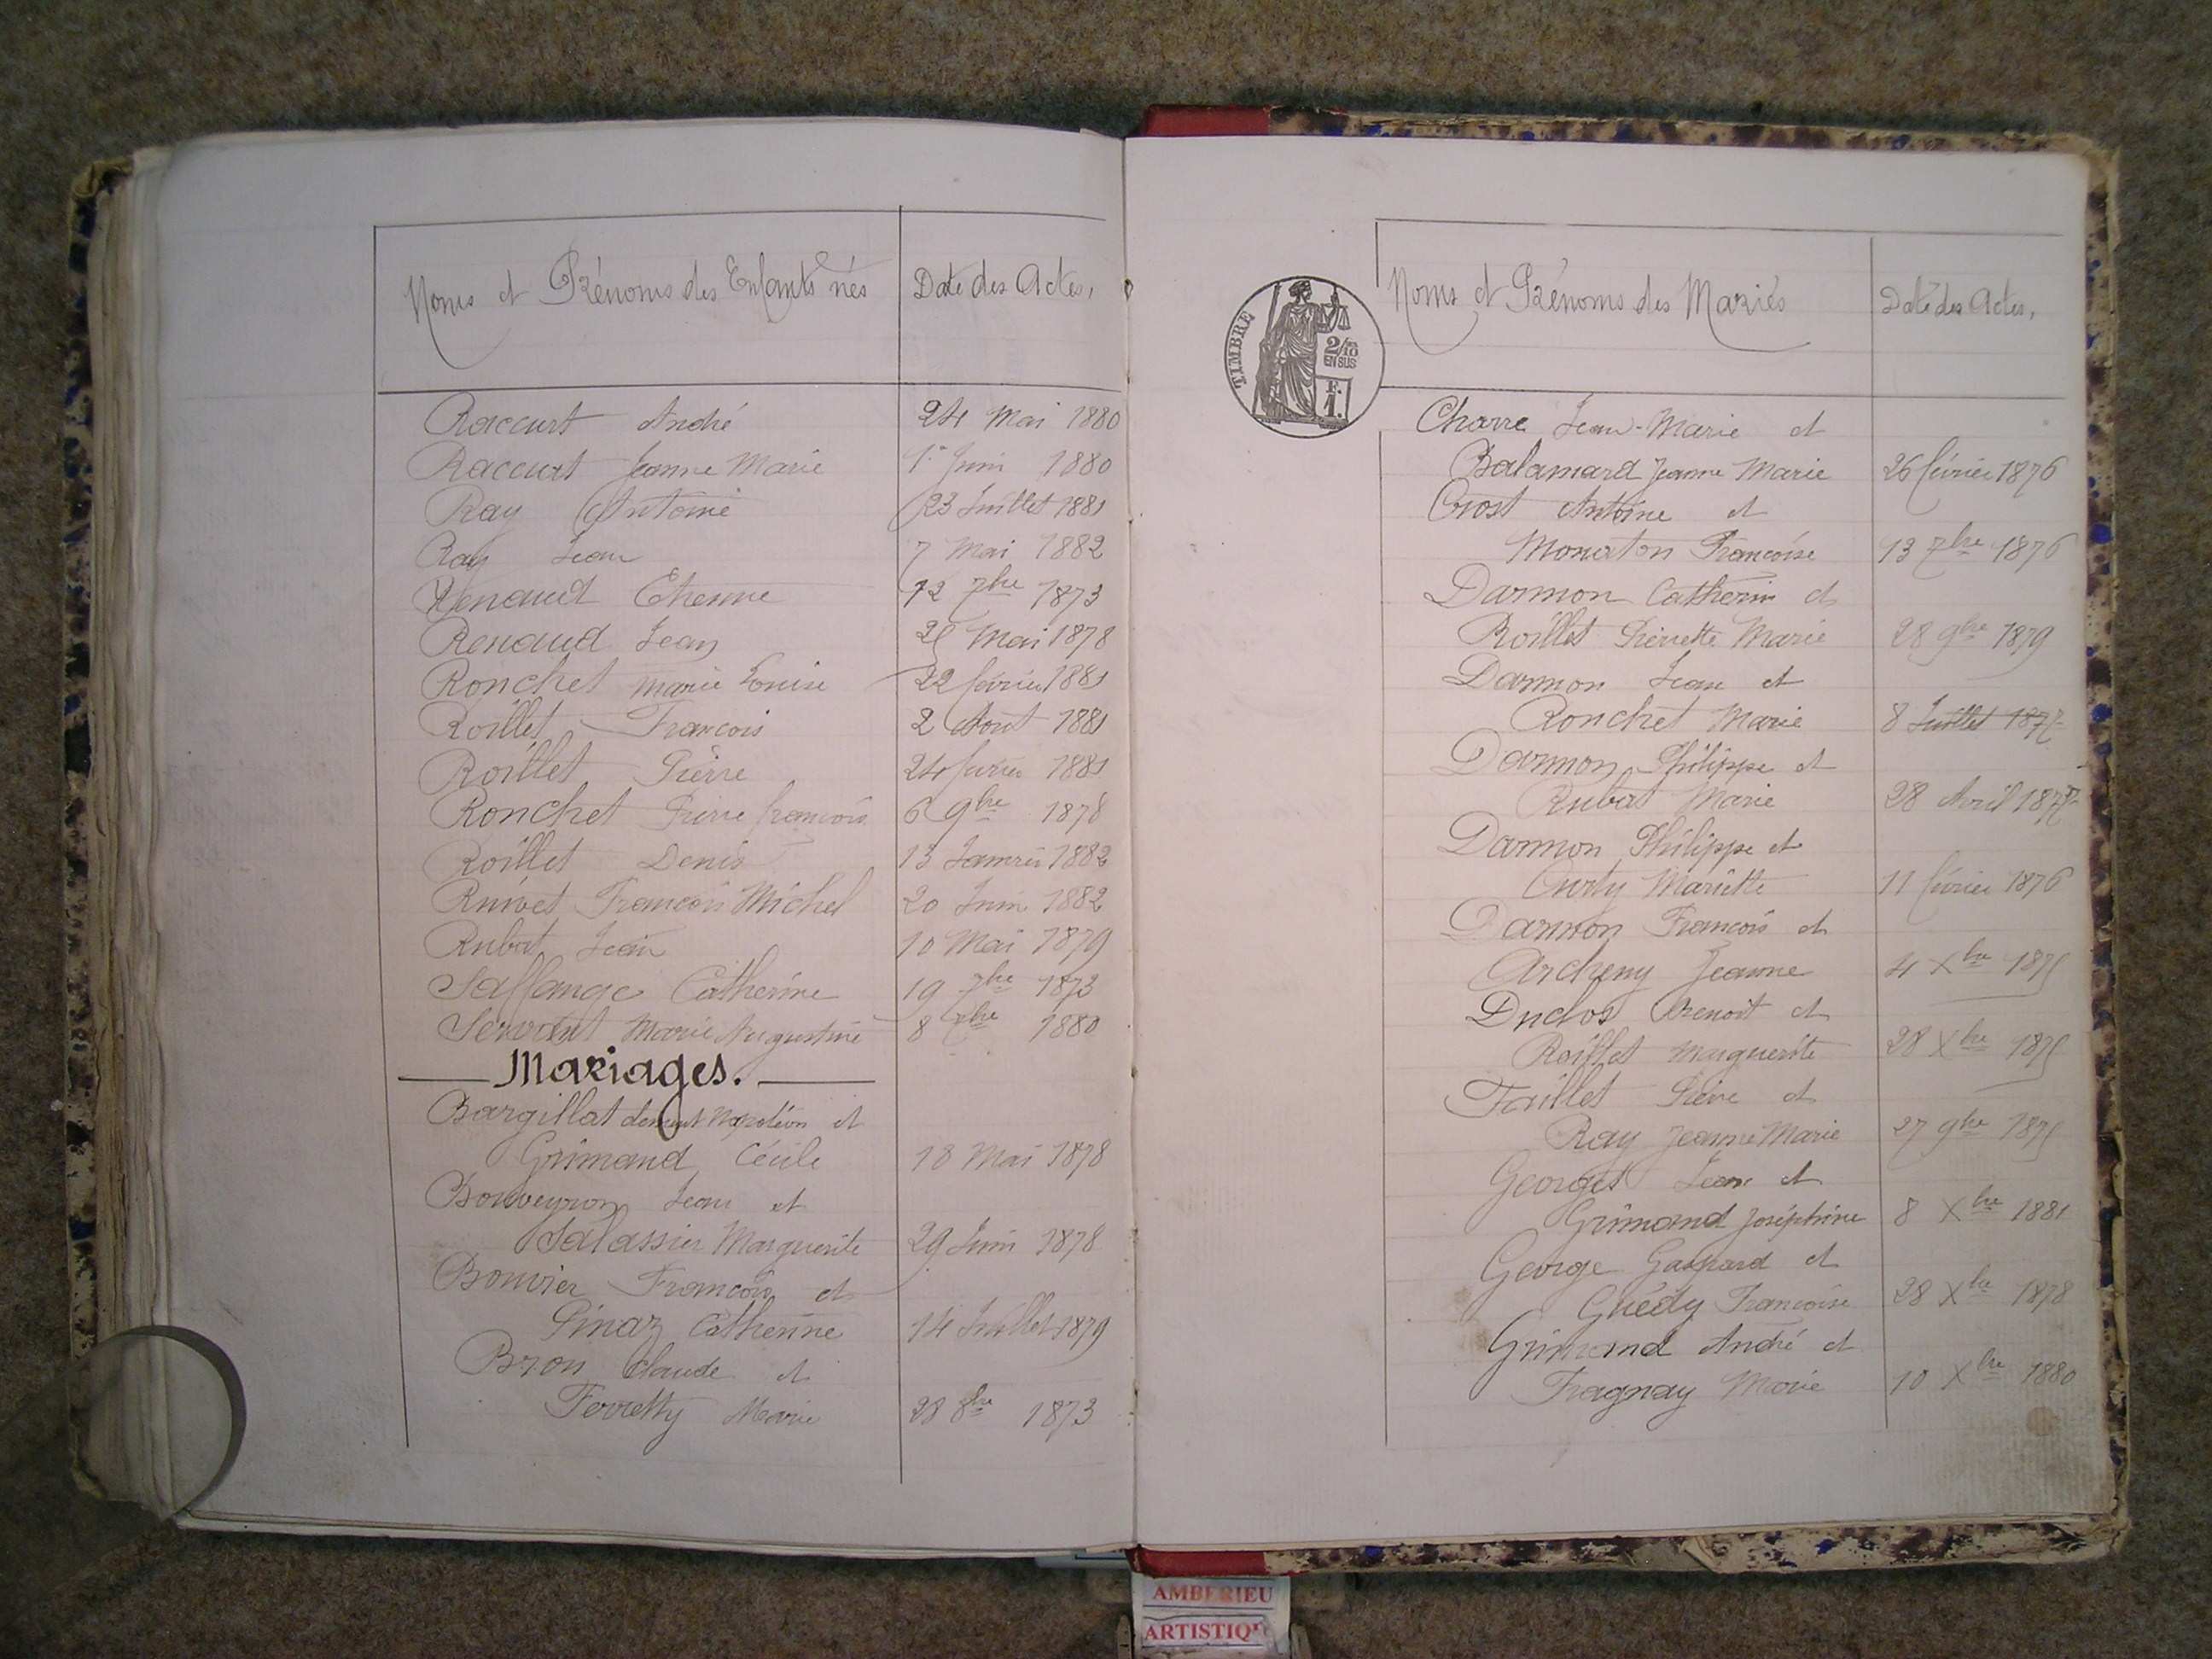 Noms et Prénoms des Enfants nés
Date des Actes,
Raccurt André 24 Mai 1880
Raccurt Jeanne Marie 1er Juin 1880
Ray Antoine 23 Juillet 1881
Ray Jean 7 Mai 1882
Renaud Etienne 12 7bre 1873
Renaud Jean Mai 1878
Ronchet Marie Louise 22 février 1881
Roillet François 2 Août 1881
Roillet Pierre 24 février 1881
Ronchet Pierre françois 6 9bre 1878
Roillet Denis 13 Janvier 1882
Ruivet François Michel 20 Juin 1882
Rubat Jean 10 Mai 1879
Sallange Catherine 19 7bre 1873
Servant Marie Augustine 8 7bre 1880
Mariages.
Bargillat Napoléon et
Grimand Cécile 18 Mai 1878
Bouveyron Jean et
Salassier Marguerite 29 Juin 1878
Bouvier François et
Pinaz Catherine 14 Juillet 1879
Bron Claude et
Ferretty Marie 28 8bre 1873
TIMBRE
2/10
EN SUS
F.
1.
Noms et Prénoms des Mariés
Date des Actes,
Charre Jean-Marie et
Balamard Jeanne Marie 26 février 1876
Crost Antoine et
Monaton Françoise 13 7bre 1876
Darmon Catherin et
Roillet Pierrette Marie 28 9bre 1879
Darmon Jean et
Ronchet Marie 8 Juillet 1877
Darmon Philippe et
Rubat Marie 28 Avril 1877
Darmon Philippe et
Curty Mariette 11 février 1876
Darmon François et
Archeny Jeanne 4 Xbre 1875
Duclos Benoit et
Roillet Marguerite 28 Xbre 1875
Faillet Pierre et
Ray Jeanne Marie 27 9bre 1875
Georges Jean et
Grimand Joséphine 8 Xbre 1881
George Gaspard et
Guédy Françoise 28 Xbre 1878
Grimand André et
Tragnay Marie 10 Xbre 1880
AMBERIEU
ARTISTIQU